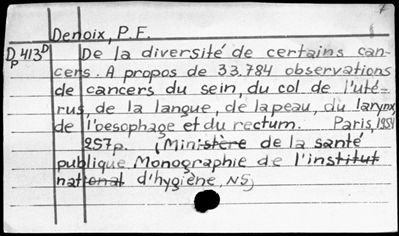 7
Denoix, P.F.
Dp 413D De la diversité de certains can-
cers. A propos de 33.784 observations
de cancers du sein, du col de l'uté-
rus, de la langue, de la peau, du larynx,
de l'oesophage et du rectum. Paris, 1954
257p. (Ministère de la santé
publique. Monographie de l'institut
national d'hygiène, NS)